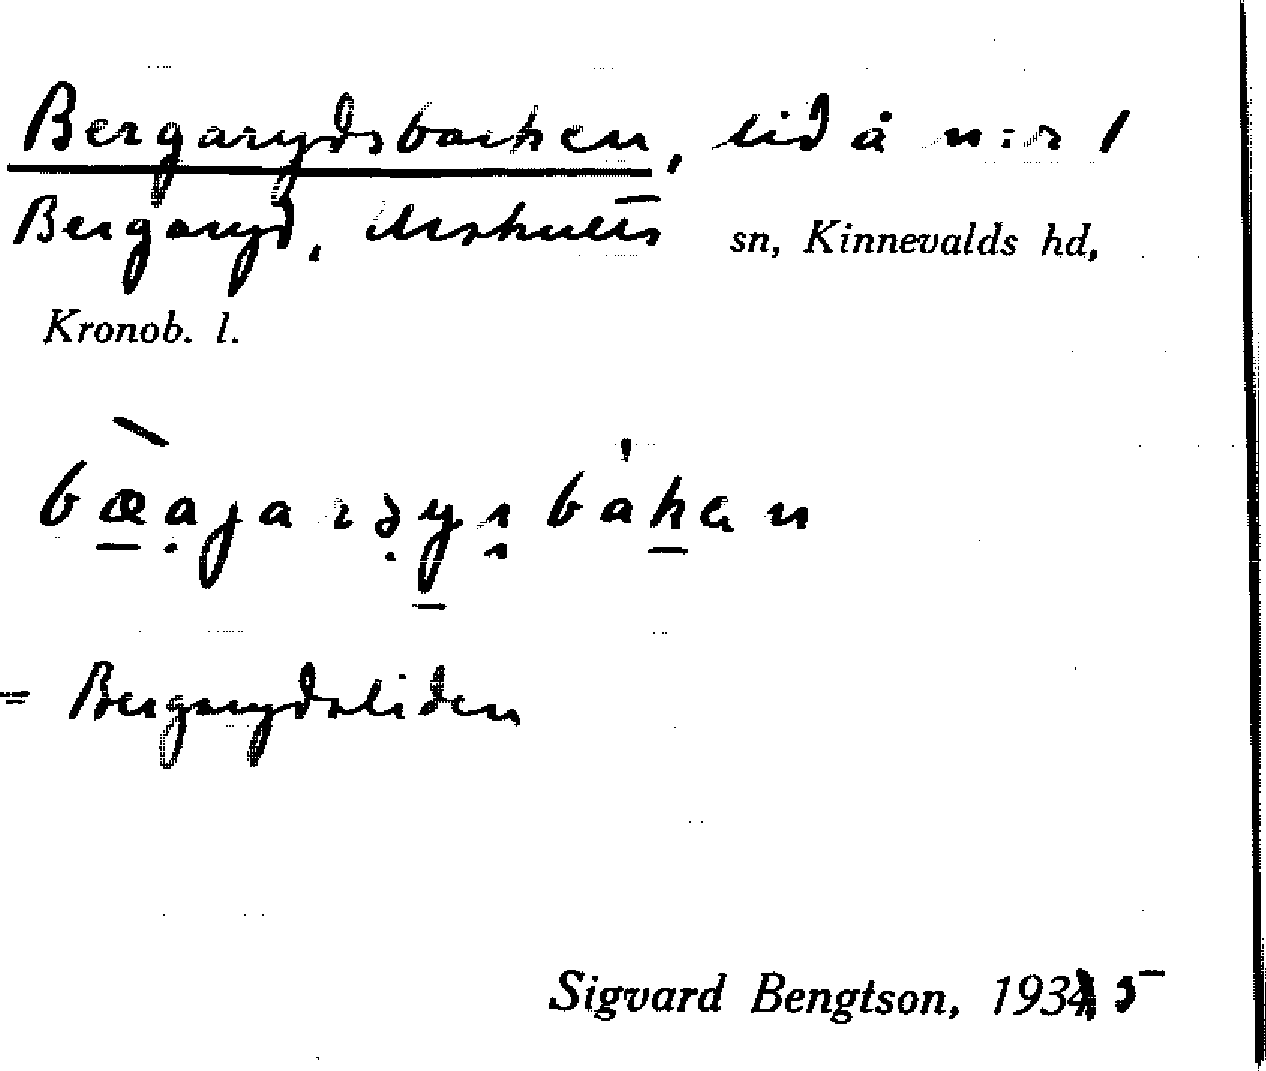 Bergarydsbacken, lid å n:r 1
Bergaryd, Urshults sn, Kinnevalds hd,
Kronob. l.
= Bergarydsliden
Sigvard Bengtson, 1935